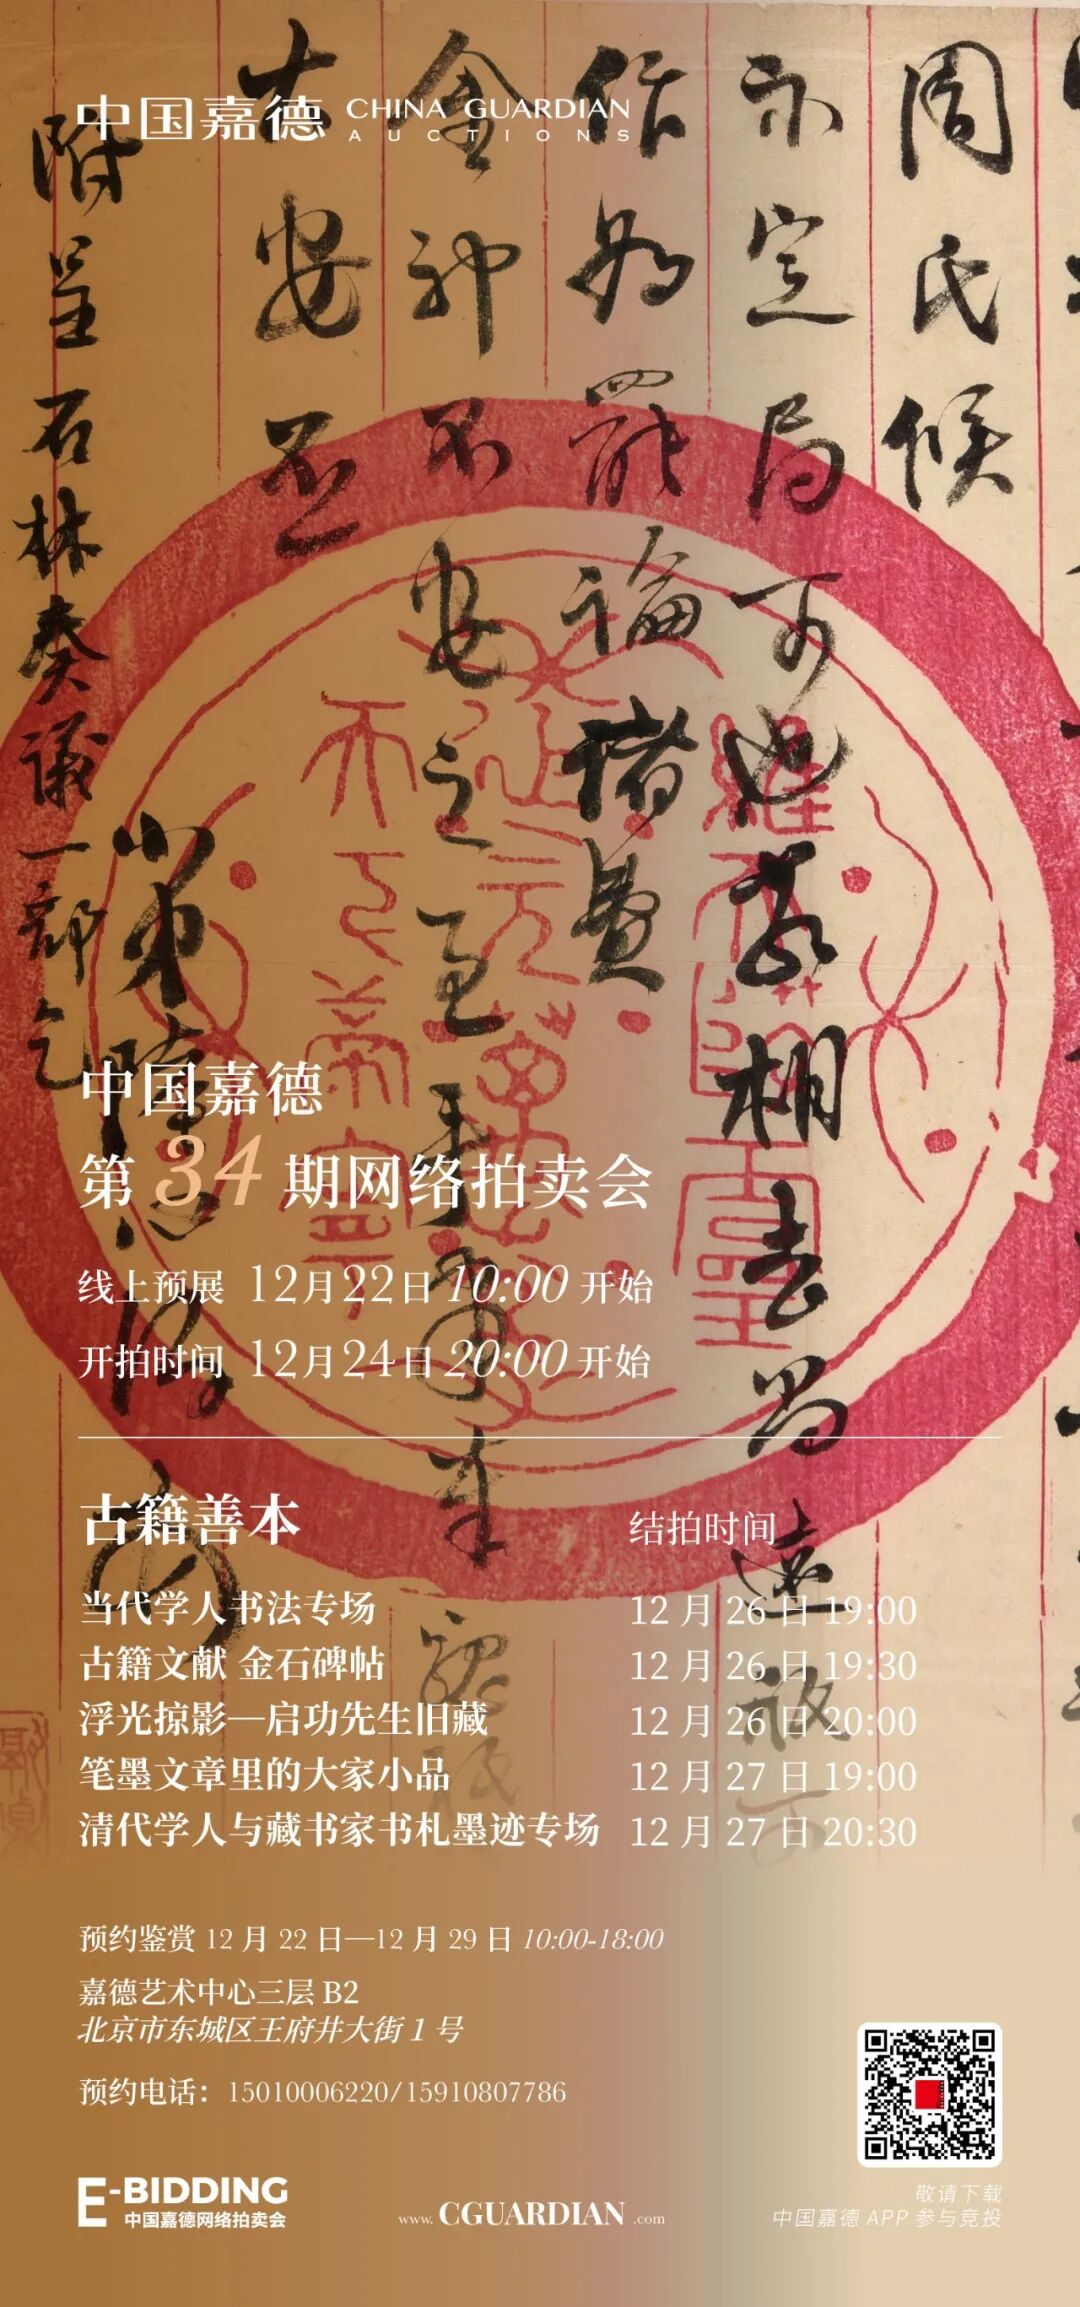 中国嘉德 CHINA GUARDIAN
AUCTIONS
周氏候
示定局可也若相去尚遠
作為罷論諸費
金神不安之至手
古安
附呈石林奏議一部乞
中国嘉德
第34期网络拍卖会
线上预展 12月22日 10:00 开始
开拍时间 12月24日 20:00 开始
古籍善本 结拍时间
当代学人书法专场 12 月 26 日 19:00
古籍文献 金石碑帖 12 月 26 日 19:30
浮光掠影—启功先生旧藏 12 月 26 日 20:00
笔墨文章里的大家小品 12 月 27 日 19:00
清代学人与藏书家书札墨迹专场 12 月 27 日 20:30
预约鉴赏 12 月 22 日—12 月 29 日 10:00-18:00
嘉德艺术中心三层 B2
北京市东城区王府井大街 1 号
预约电话：15010006220/15910807786
E-BIDDING
中国嘉德网络拍卖会
www. CGUARDIAN .com
敬请下载
中国嘉德 APP 参与竞投